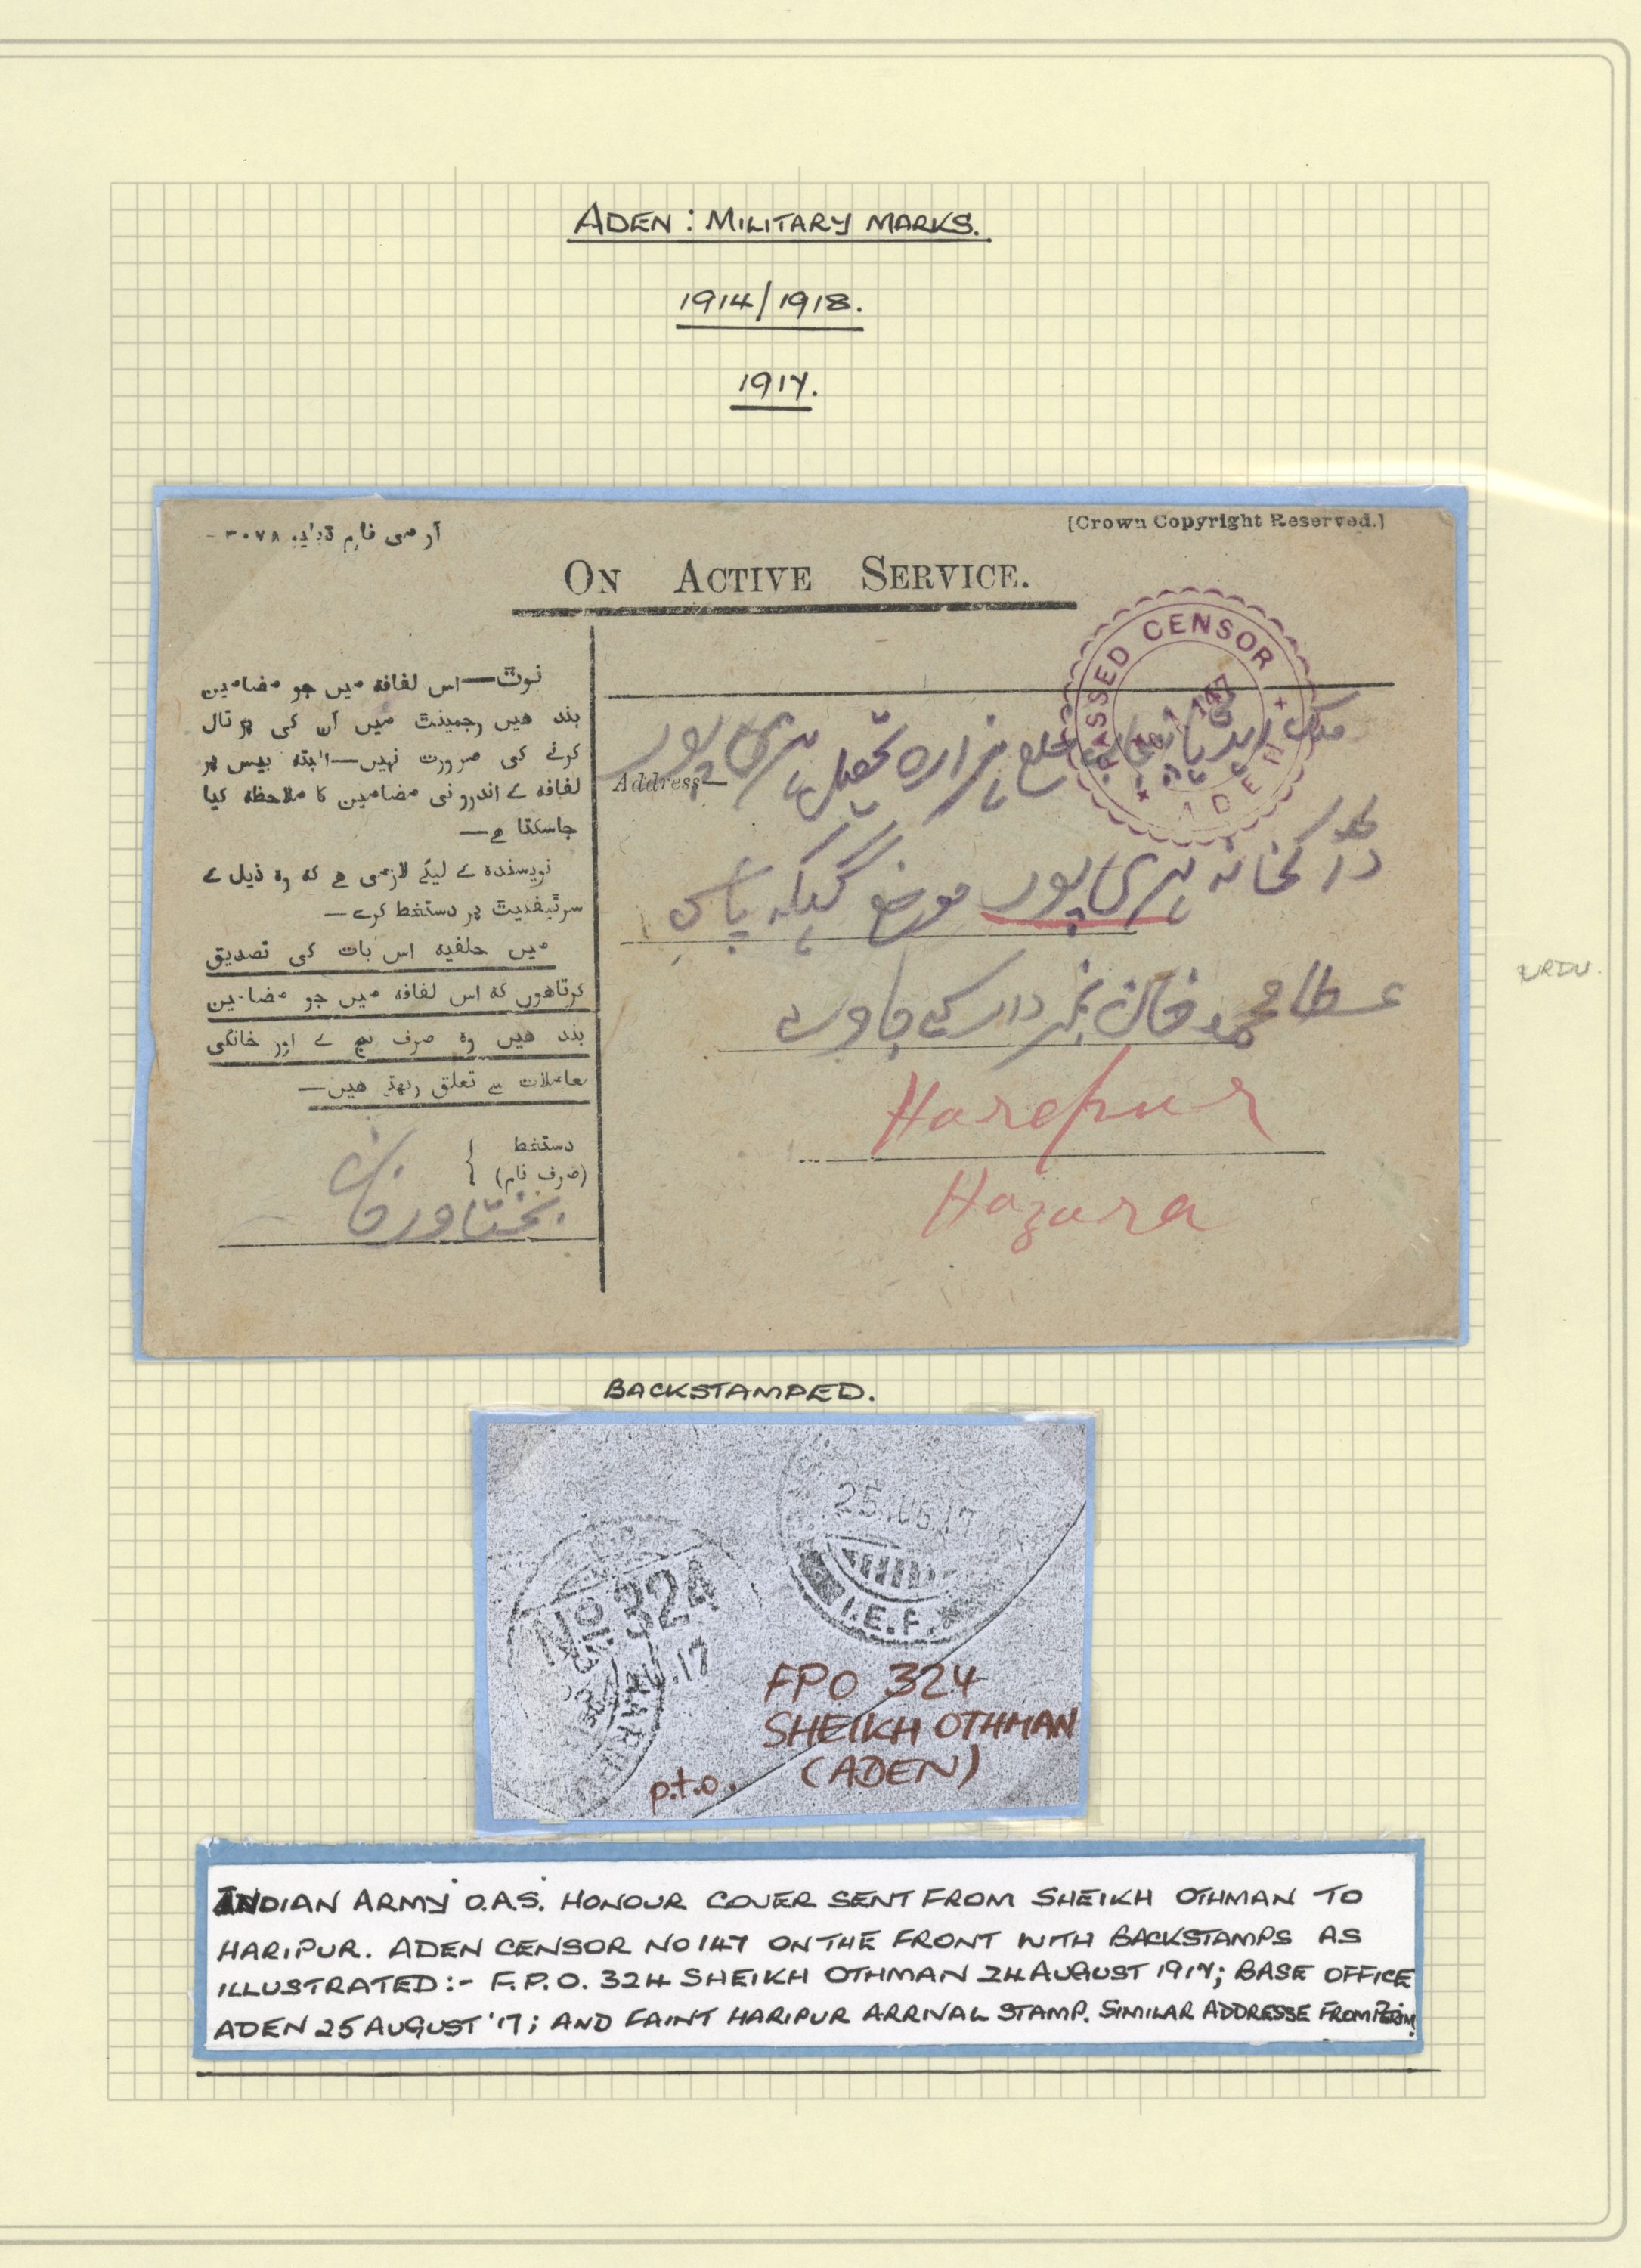 ADEN : MILITARY MARKS.
1914/1918.
1917.
آر می فارم ڈبلیو. ۳۰۷۸ -
[Crown Copyright Reserved.]
ON ACTIVE SERVICE.
نوٹ—اس لفافہ میں جو مضامین
بند هیں رجمینٹ میں اُن کی پڑتال
کرنے کی ضرورت نہیں—البتہ بیس پر
لفافہ کے اندرونی مضامین کا ملاحظہ کیا
جاسکتا ہے—
نویسندہ کے لیئے لازمی ہے کہ وہ ذیل کے
سرٹیفیٹ پر دستخط کرے—
میں حلفیہ اس بات کی تصدیق
کرتاهوں کہ اس لفافہ میں جو مضامین
بند هیں وہ صرف نج کے اور خانگی
معاملات سے تعلق رکھتے هیں—
دستخط
(صرف نام)
بختاور خان
PASSED CENSOR
147
ADEN
Address—
ملک انڈیا پنجاب ضلع ہزارہ تحصیل ہری پور
ڈاکخانہ ہری پور موضع پاس
عطا محمد خان نمبردار کے جاوے
Harepur
Hazara
URDU.
BACKSTAMPED.
25.AUG.17
I.E.F.
No. 324
.17
FPO 324
SHEIKH OTHMAN
(ADEN)
p.t.o.
INDIAN ARMY O.A.S. HONOUR COVER SENT FROM SHEIKH OTHMAN TO
HARIPUR. ADEN CENSOR NO 147 ON THE FRONT WITH BACKSTAMPS AS
ILLUSTRATED:- F.P.O. 324 SHEIKH OTHMAN 24 AUGUST 1917; BASE OFFICE
ADEN 25 AUGUST '17; AND FAINT HARIPUR ARRIVAL STAMP. SIMILAR ADDRESSE FROM PERIM.